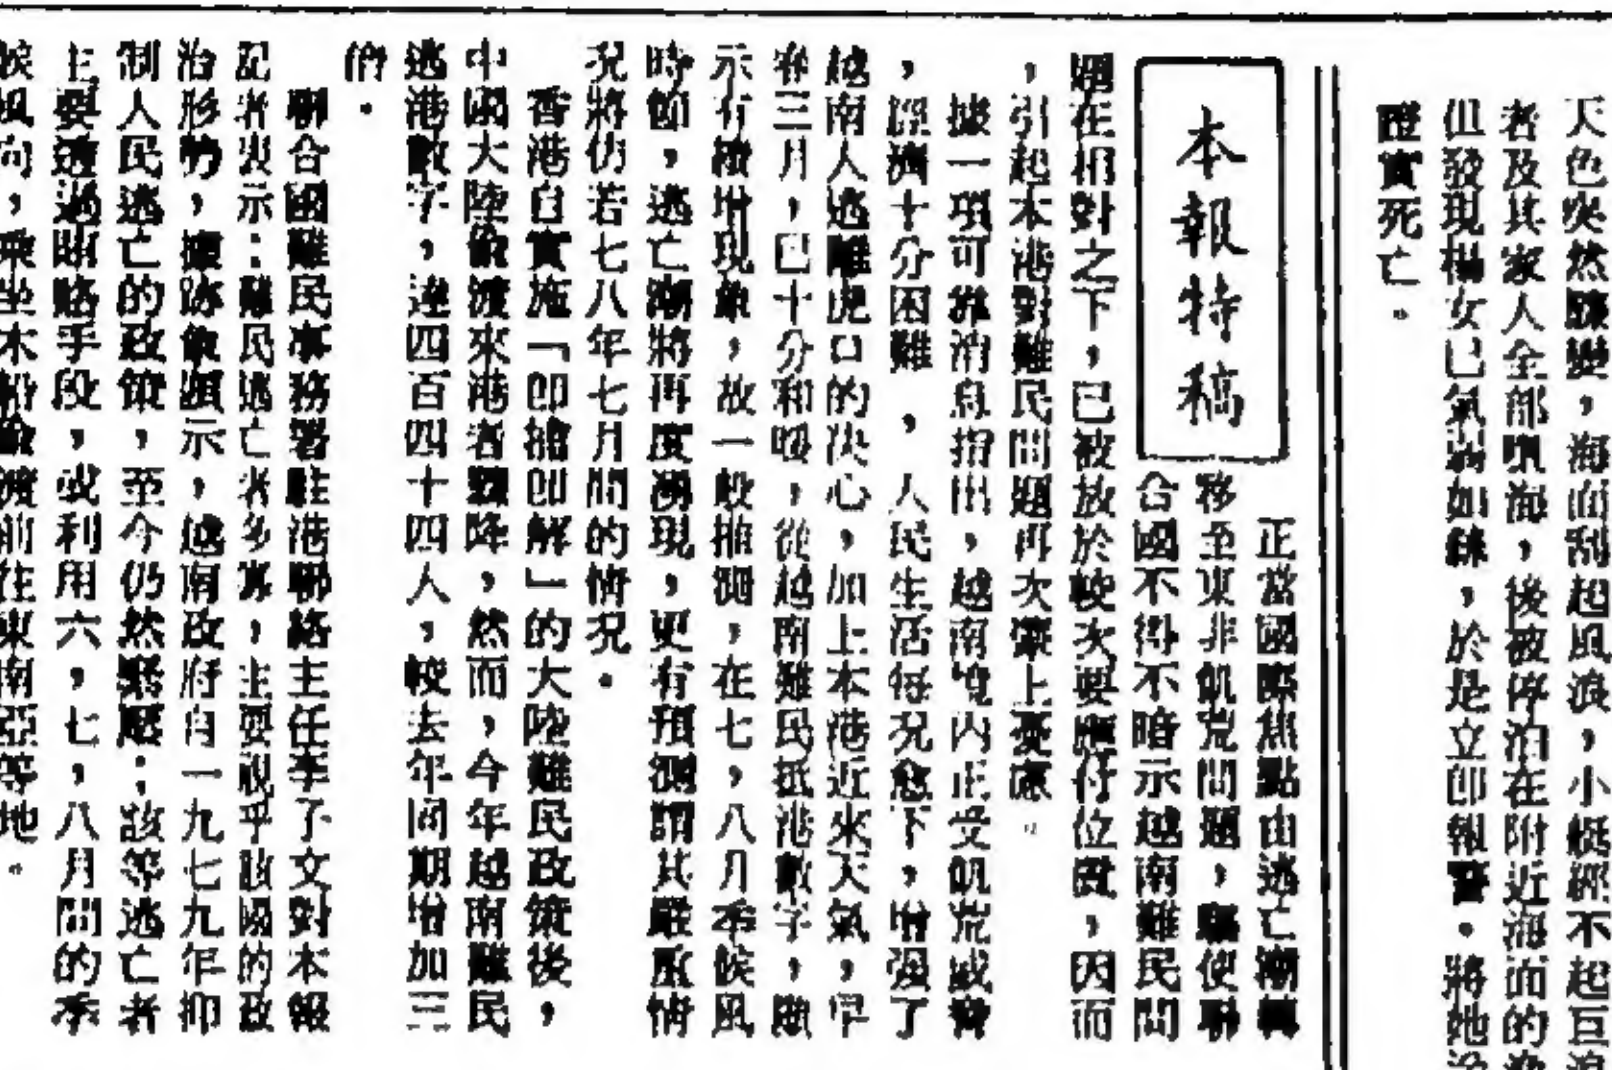 天色突然驟變，海面刮起風浪，小艇經不起巨浪
者及其家人全部墮海，後被停泊在附近海面的漁
但發現楊女已氣弱如絲，於是立即報警。將她
證實死亡。
本報特稿
正當國際焦點由逃亡潮轉
移至東非飢荒問題，驅使聯
合國不得不暗示越南難民問
題在相對之下，已被放於較次要應付位置，因而
，引起本港對難民問題再次蒙上憂慮。
據一項可靠消息指出，越南境內正受飢荒威脅
，經濟十分困難，人民生活每況愈下，增强了
越南人逃離虎口的决心，加上本港近來天氣，早
在三月，已十分和暖，從越南難民抵港數字，顯
示有激增現象，故一般推測，在七，八月季候風
時節，逃亡潮將再度湧現，更有預測謂其嚴重情
況將仿若七八年七月間的情況。
香港自實施「即捕即解」的大陸難民政策後，
中國大陸偷渡來港者驟降，然而，今年越南難民
逃港數字，達四百四十四人，較去年同期增加三
倍。
聯合國難民事務署駐港聯絡主任李了文對本報
記者表示：難民逃亡者多寡，主要視乎該國的政
治形勢，據跡象顯示，越南政府自一九七九年抑
制人民逃亡的政策，至今仍然緊壓；該等逃亡者
主要透過賄賂手段，或利用六，七，八月間的季
候風向，乘坐木船偷渡前往東南亞等地。